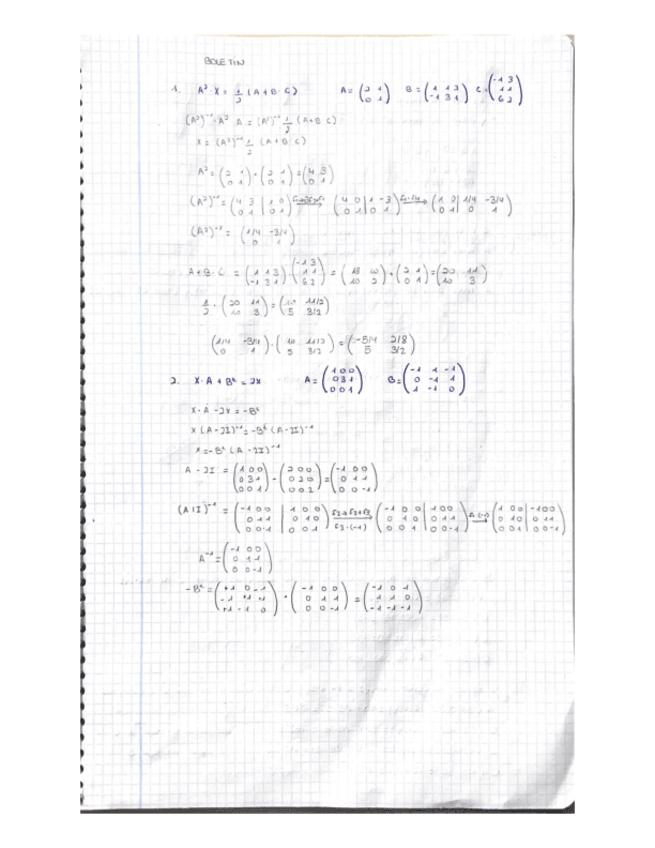 BOLETIN
1. A² · X = 1/2 (A + B · C) A = (2 1 / 0 1) B = (1 1 3 / -1 3 1) C = (-1 3 / 1 1 / 6 2)
X = (A²)⁻¹ 1/2 (A + B C)
A² = (2 1 / 0 1) · (2 1 / 0 1) = (4 3 / 0 1)
(A²)⁻¹ = (4 3 | 1 0 / 0 1 | 0 1) → (4 0 | 1 -3 / 0 1 | 0 1) → (1 0 | 1/4 -3/4 / 0 1 | 0 1)
(A²)⁻¹ = (1/4 -3/4 / 0 1)
A + B · C = (1 1 3 / -1 3 1) · (-1 3 / 1 1 / 6 2) = (18 10 / 10 2) + (2 1 / 0 1) = (20 11 / 10 3)
1/2 · (20 11 / 10 3) = (10 11/2 / 5 3/2)
(1/4 -3/4 / 0 1) · (10 11/2 / 5 3/2) = (-5/4 2/8 / 5 3/2)
2. X · A + B² = 2X A = (1 0 0 / 0 3 1 / 0 0 1) B = (-1 1 -1 / 0 -1 1 / 1 -1 0)
X · A - 2X = -B²
X (A - 2I)⁻¹ = -B² (A - 2I)⁻¹
X = -B² (A - 2I)⁻¹
A - 2I = (1 0 0 / 0 3 1 / 0 0 1) - (2 0 0 / 0 2 0 / 0 0 2) = (-1 0 0 / 0 1 1 / 0 0 -1)
(A|I)⁻¹ = (-1 0 0 | 1 0 0 / 0 1 1 | 0 1 0 / 0 0 -1 | 0 0 1) → (-1 0 0 | 1 0 0 / 0 1 0 | 0 1 1 / 0 0 1 | 0 0 -1) → (1 0 0 | -1 0 0 / 0 1 0 | 0 1 1 / 0 0 1 | 0 0 -1)
A⁻¹ = (-1 0 0 / 0 1 1 / 0 0 -1)
-B² = · (-1 0 0 / 0 1 1 / 0 0 -1) = (-1 0 1 / 1 1 0 / -1 -1 -1)